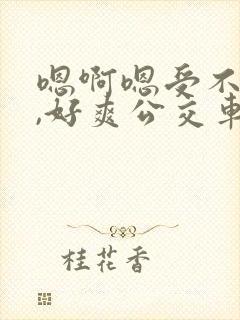 嗯啊嗯受不
,好爽公交车
桂花香